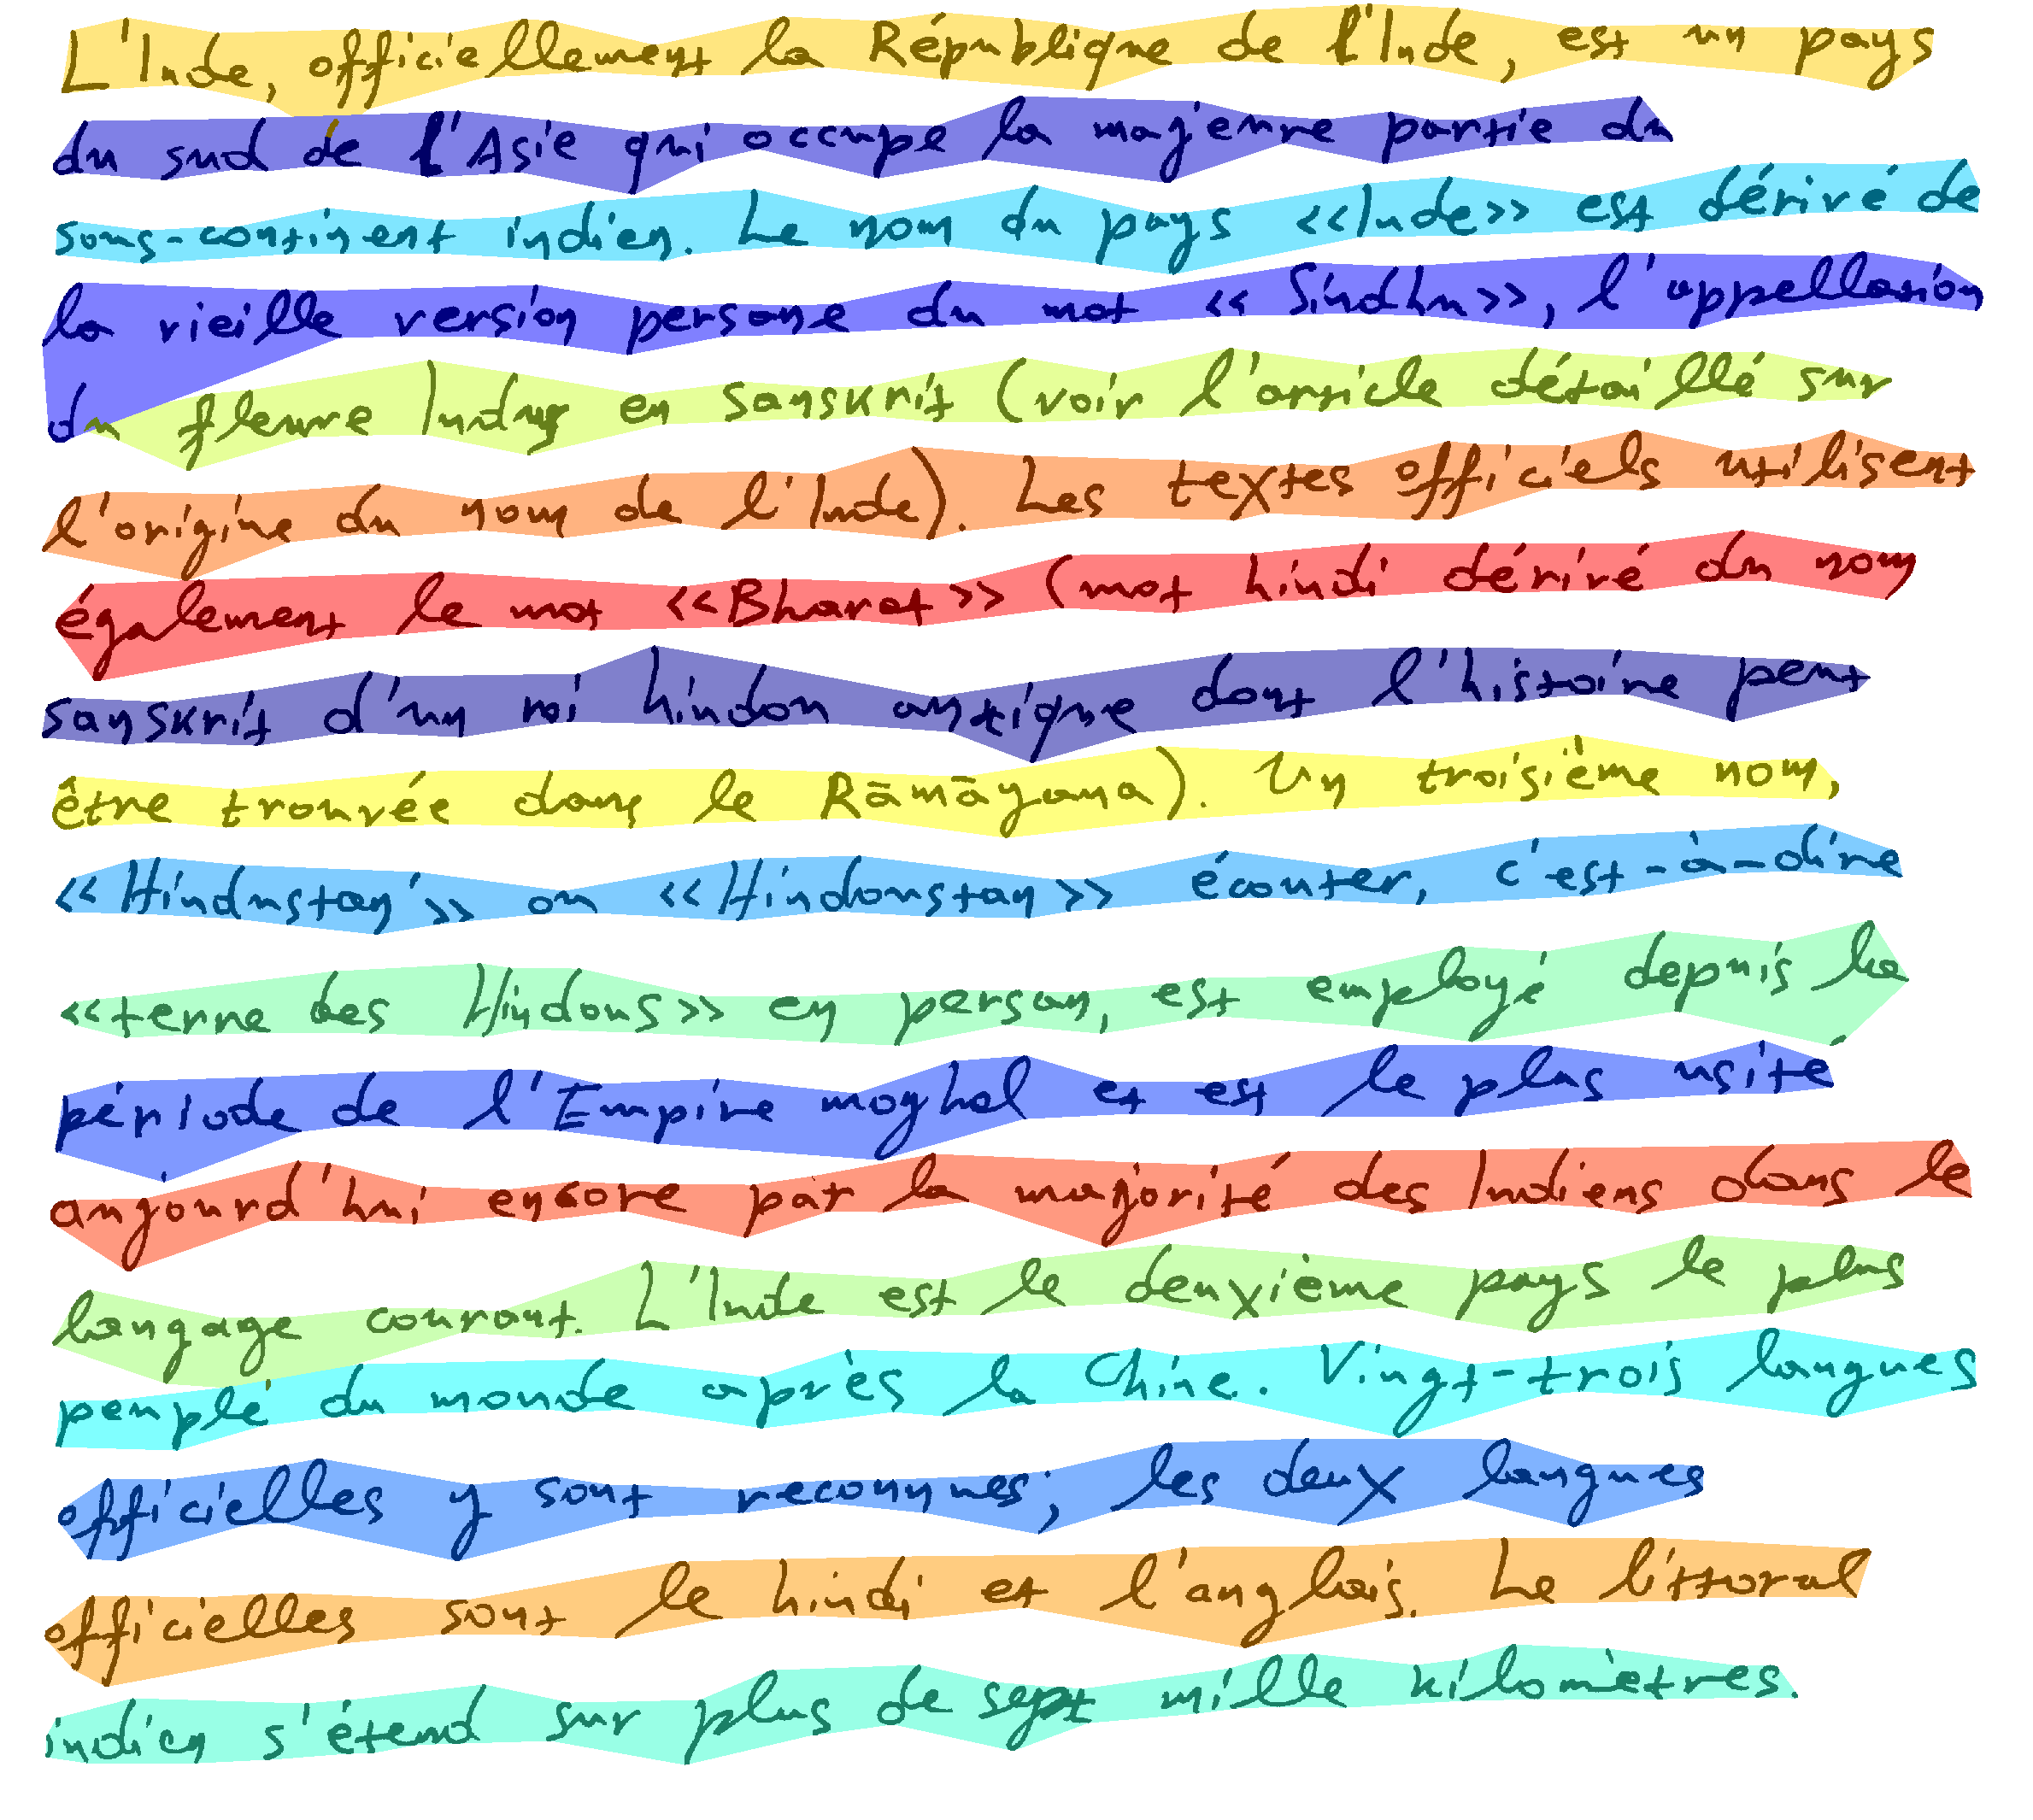 L'Inde, officiellement la République de l'Inde, est un pays
du sud de l'Asie qui occupe la majeure partie du
sous-continent indien. Le nom du pays <<Inde>> est dérivé de
la vieille version persane du mot << Sindhu>>, l'appellation
du fleuve Indus en sanskrit (voir l'article détaillé sur
l'origine du nom de l'Inde). Les textes officiels utilisent
également le mot <<Bharat>> (mot hindi dérivé du nom
sanskrit d'un roi hindou antique dont l'histoire peut
être trouvée dans le Rāmāyana). Un troisième nom,
<<Hindustan'>> ou <<Hindoustan>> écouter, c'est-à-dire
<<terre des Hindous>> en persan, est employé depuis la
période de l'Empire moghol et est le plus usité
aujourd'hui encore par la majorité des Indiens dans le
langage courant. L'Inde est le deuxième pays le plus
peuplé du monde après la Chine. Vingt-trois langues
officielles y sont reconnues; les deux langues
officielles sont le hindi et l'anglais. Le littoral
indien s'étend sur plus de sept mille kilomètres.